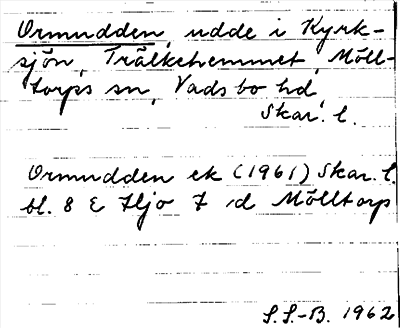 Ormudden, udde i Kyrk-
sjön, Trälkehemmet, Möll-
torps sn, Vadsbo hd,
Skar. l.
Ormudden ek (1961) Skar. l.
bl. 8 E Hjo 7 d Mölltorp
S.S.-B. 1962